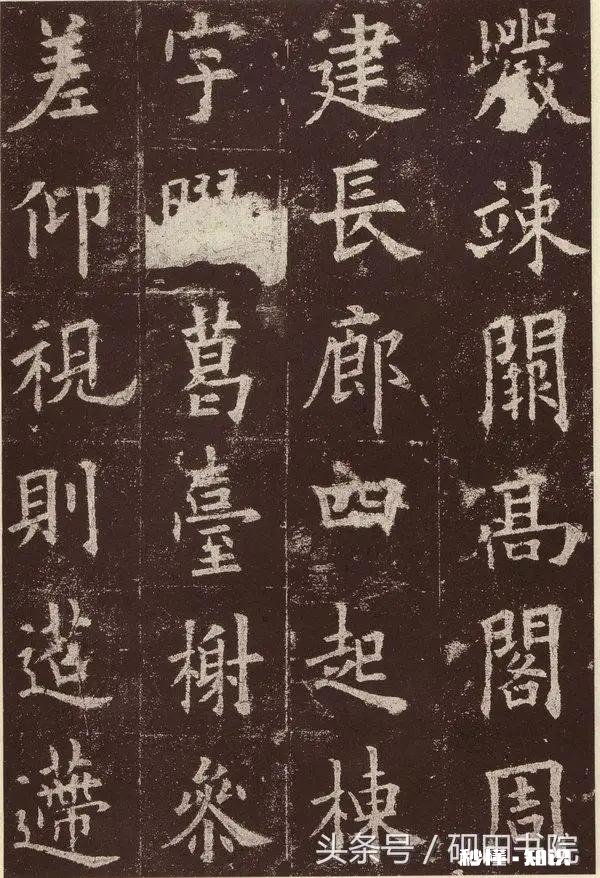 巖竦闕高閣周
建長廊四起棟
宇葛臺榭參
差仰視則迢遰
头条号 / 砚田书院
秒懂·知识